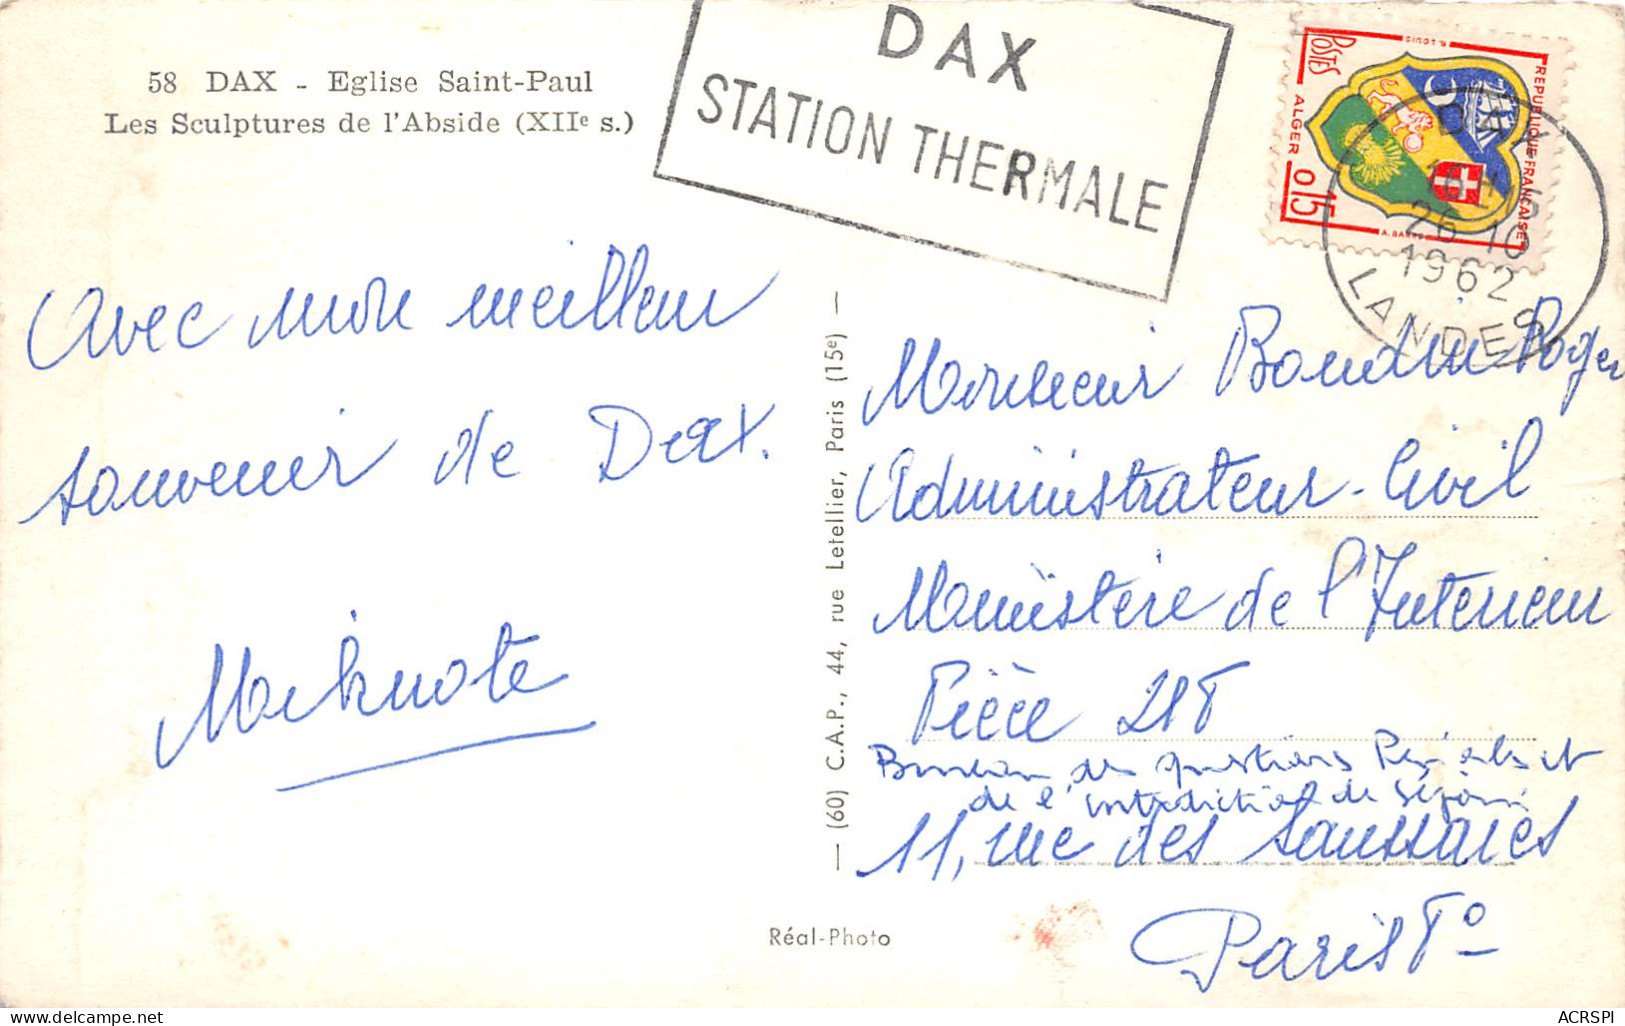 58 DAX - Eglise Saint-Paul
Les Sculptures de l'Abside (XIIe s.)
DAX
STATION THERMALE
POSTES
REPUBLIQUE FRANÇAISE
ALGER 0,15
DAX
26-10
1962
LANDES
Avec mon meilleur
souvenir de Dax.
— (60) C.A.P., 44, rue Letellier, Paris (15e) —
Monsieur Roger
Administrateur-Civil
Ministère de l'Interieur
Pièce 218
Bureau des questions et
de l'interdiction de Séjour
11, rue des Saussaies
Paris 8°
Réal-Photo
delcampe.net
ACRSPI